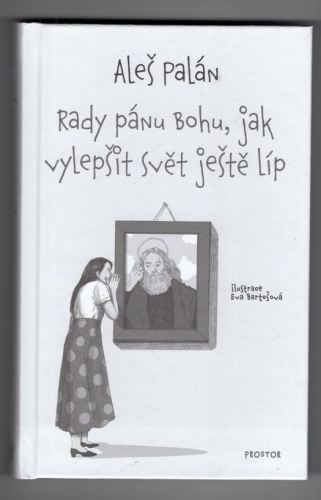 Aleš Palán
Rady pánu Bohu, jak
vylepšit svět ještě líp
ilustrace
Eva Bartošová
PROSTOR